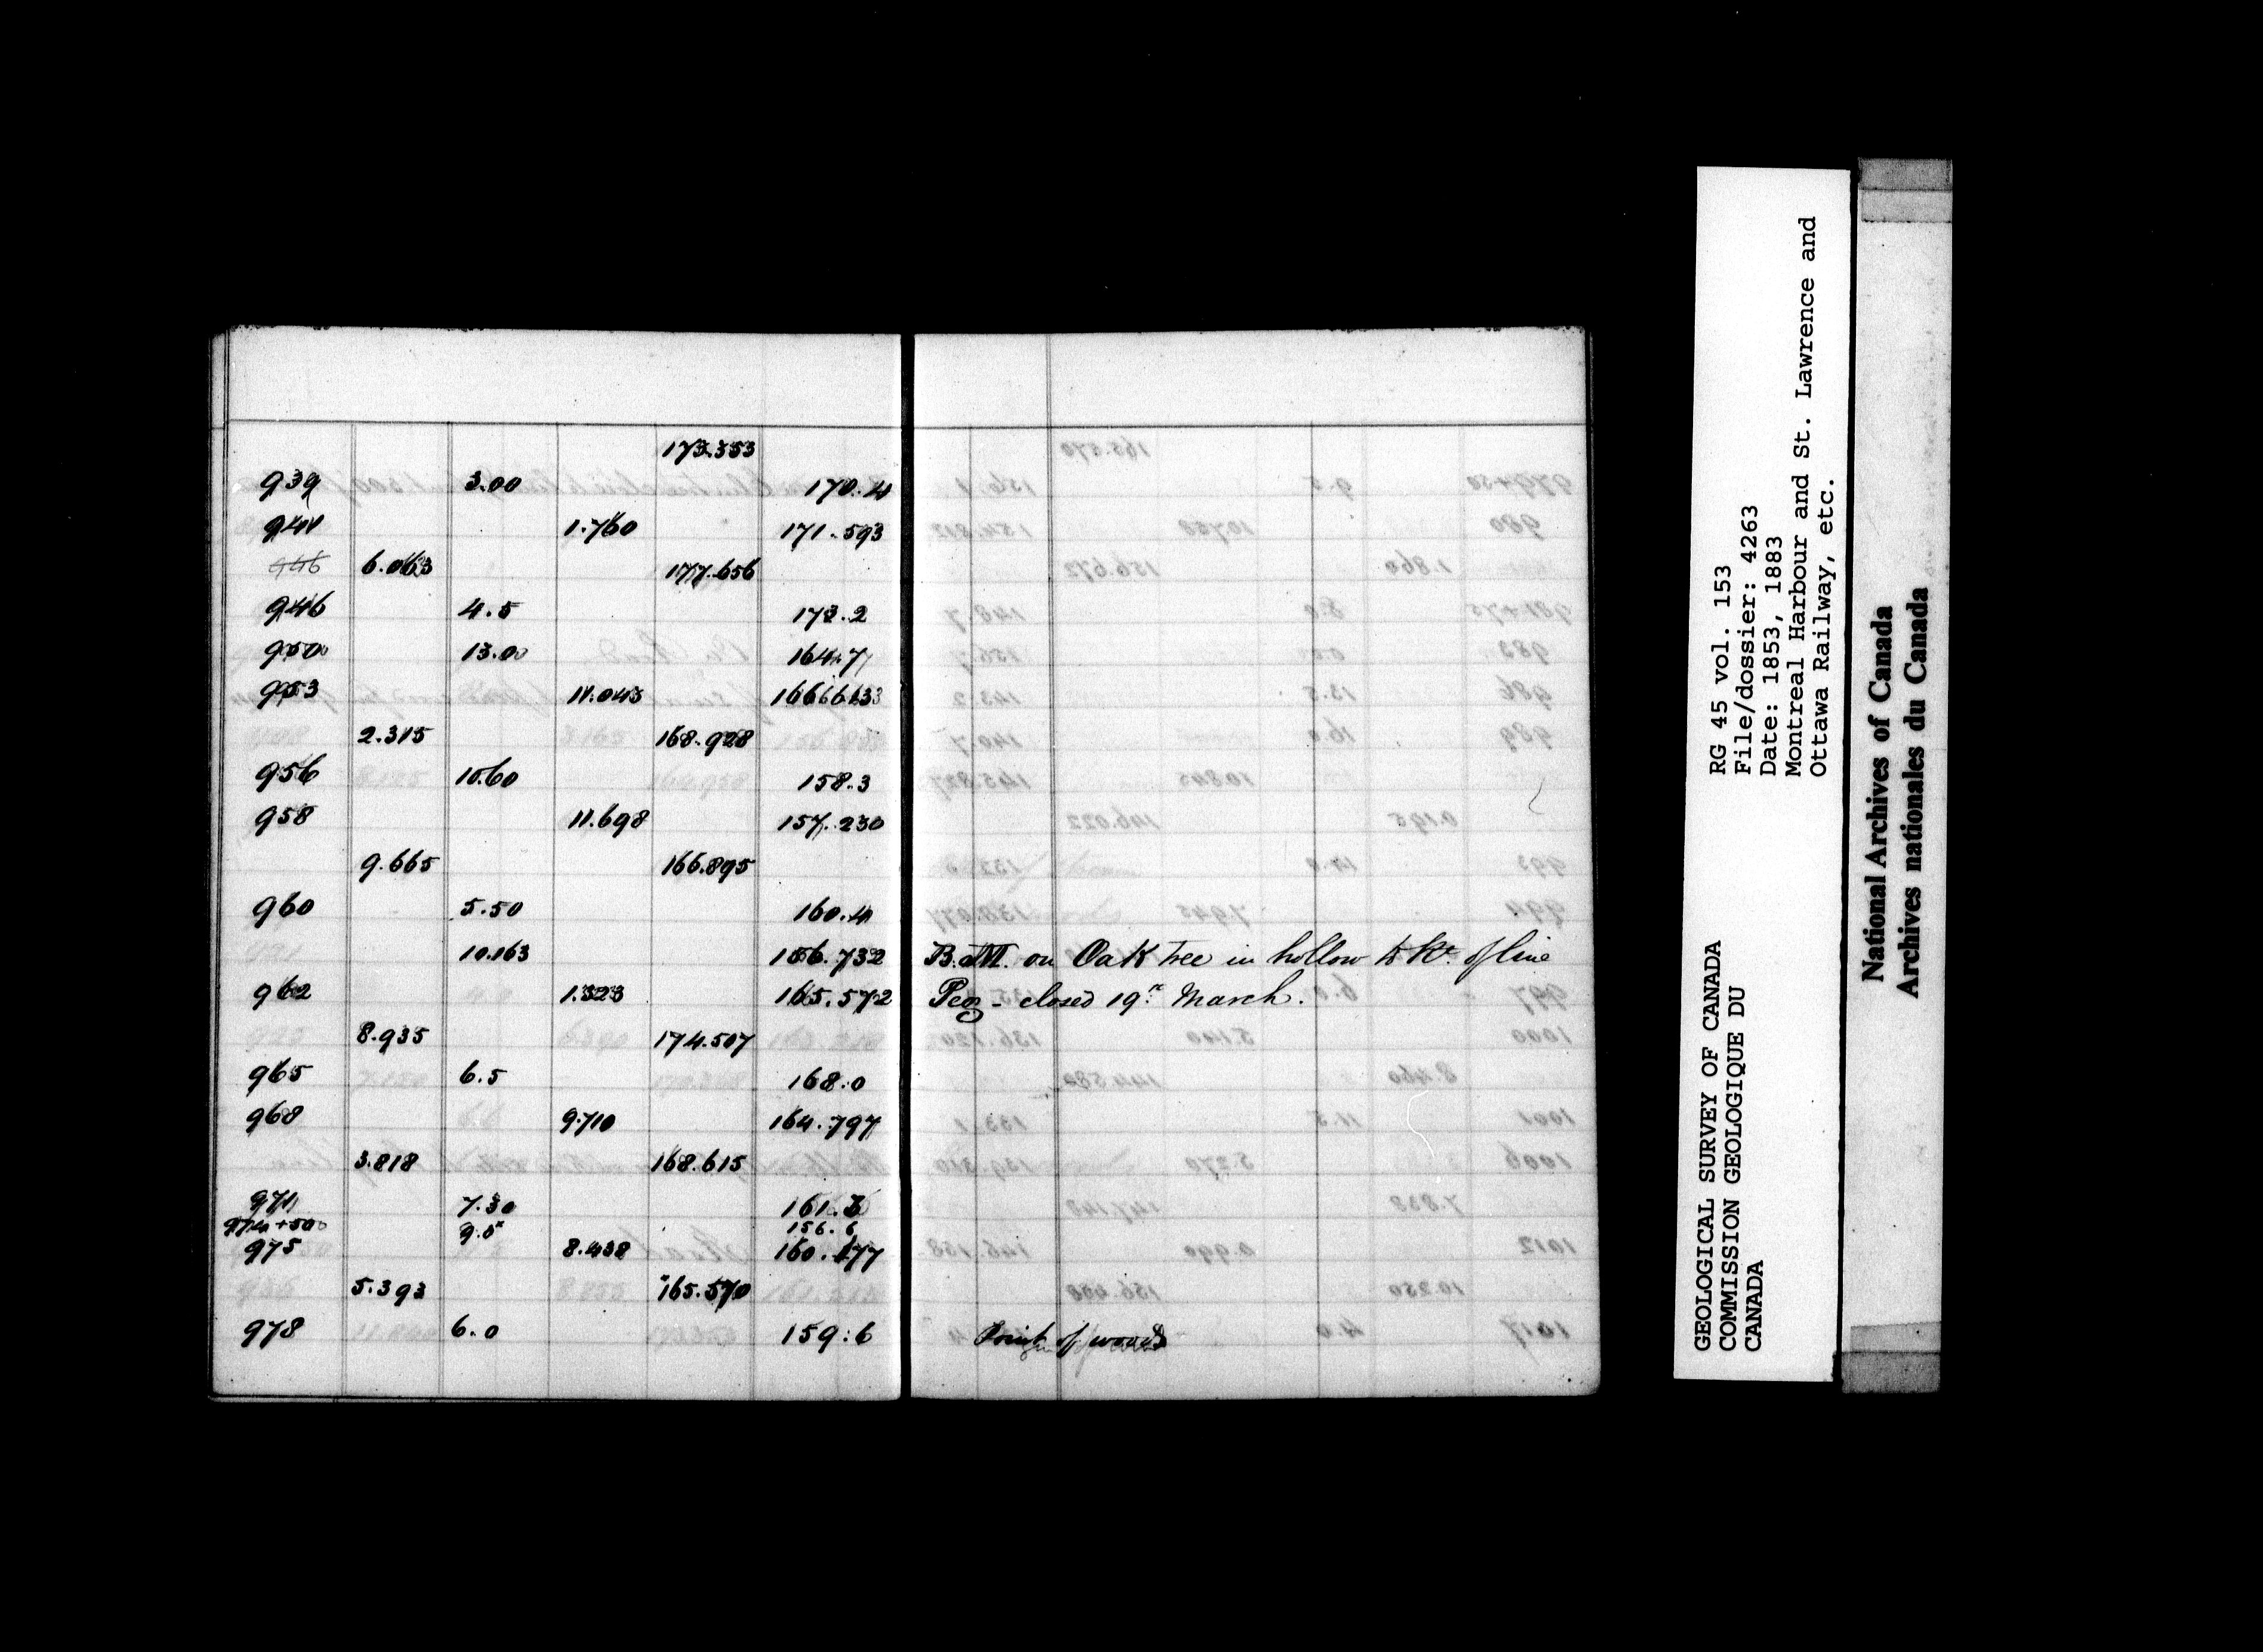 173.353
939 3.00 170.4
941 1.760 171.593
946 6.063 177.656
946 4.5 173.2
950 13.00 164.7
953 11.043 166.613
2.315 168.928
956 10.60 158.3
958 11.698 157.230
9.665 166.895
960 5.50 160.4
10.163 156.732 B.M. on Oak tree in hollow to Rt. of line
962 1.323 165.572 Peg - closed 19th March.
8.935 174.507
965 6.5 168.0
968 9.710 164.797
3.818 168.615
971 7.30 161.3
975 8.438 160.177
5.393 165.570
978 6.0 159.6 Point of woods
GEOLOGICAL SURVEY OF CANADA
COMMISSION GEOLOGIQUE DU
CANADA
RG 45 vol. 153
File/dossier: 4263
Date: 1853, 1883
Montreal Harbour and St. Lawrence and
Ottawa Railway, etc.
National Archives of Canada
Archives nationales du Canada